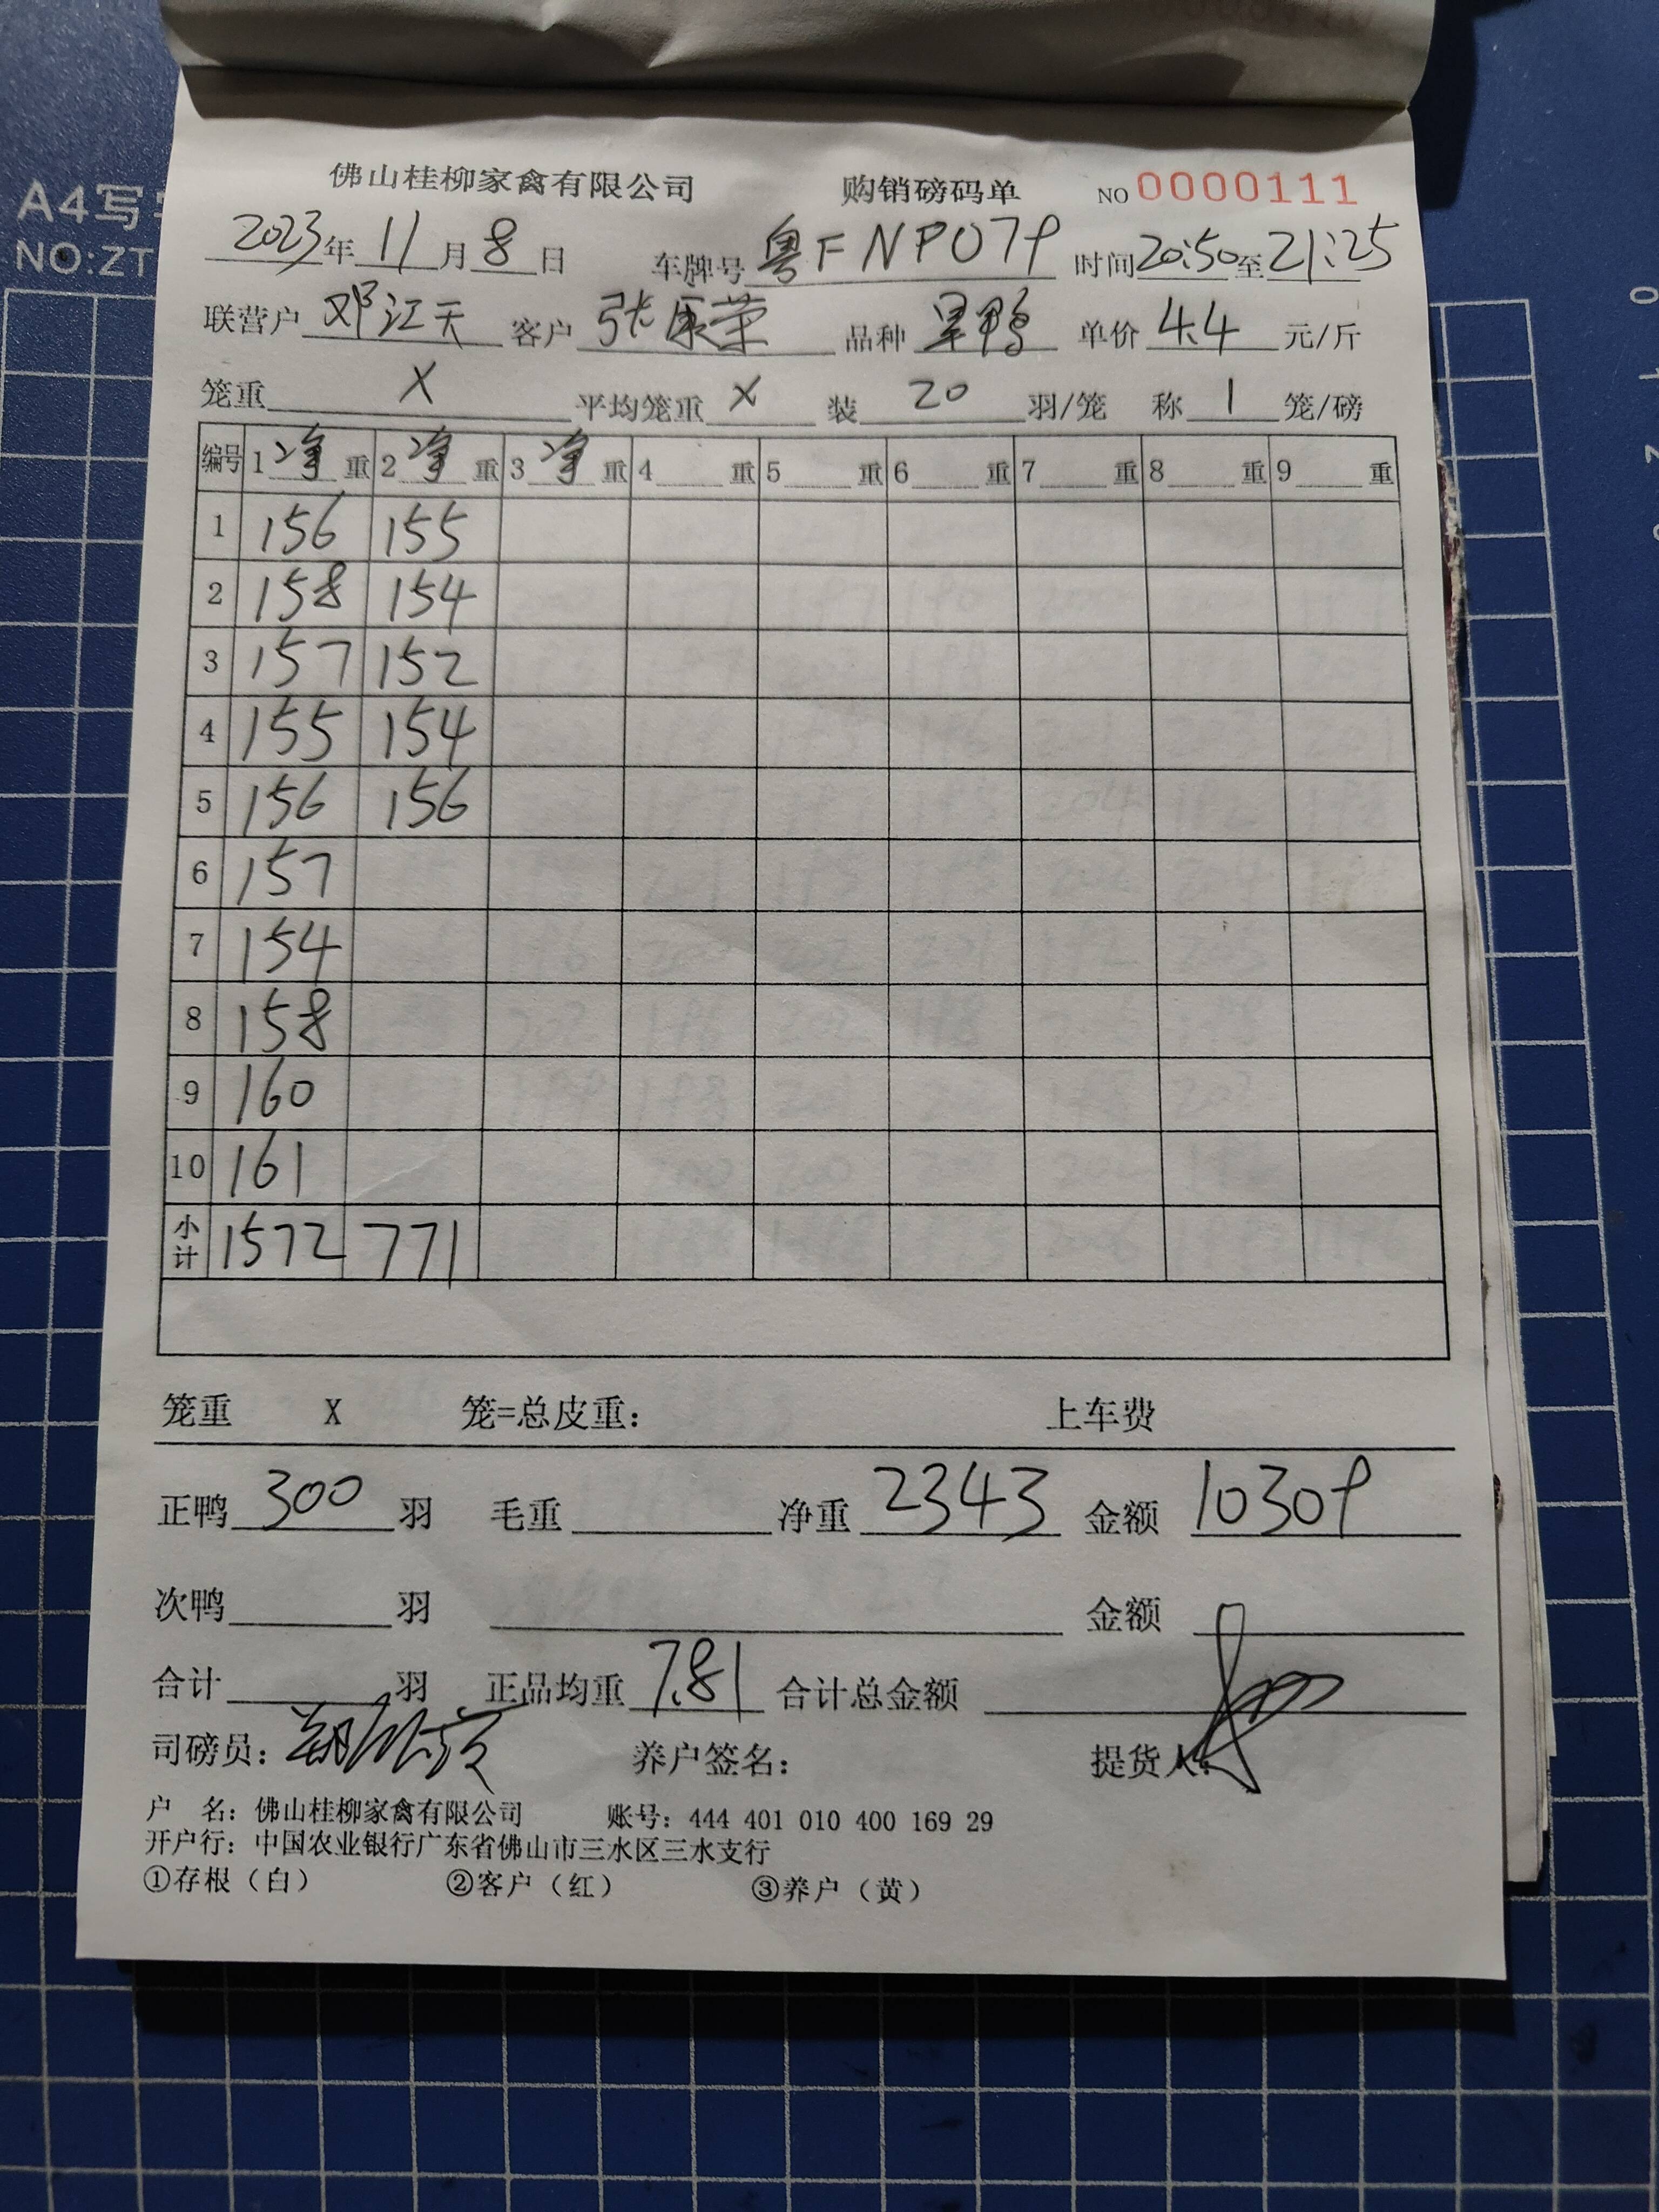 A4写
NO:ZT
佛山桂柳家禽有限公司 购销磅码单 NO 0000111
2023年 11月 8日 车牌号 粤FNP079 时间 20:50至21:25
联营户 邓江天 客户 张康荣 品种 旱鸭 单价 4.4 元/斤
笼重 X 平均笼重 X 装 20 羽/笼 称 1 笼/磅
编号 1 净 重 2 净 重 3 净 重 4 重 5 重 6 重 7 重 8 重 9 重
1 156 155
2 158 154
3 157 152
4 155 154
5 156 156
6 157
7 154
8 158
9 160
10 161
小计 1572 771
笼重 X 笼=总皮重: 上车费
正鸭 300 羽 毛重 净重 2343 金额 10309
次鸭 羽 金额
合计 羽 正品均重 7.81 合计总金额
司磅员: 养户签名: 提货人:
户 名: 佛山桂柳家禽有限公司 账号: 444 401 010 400 169 29
开户行: 中国农业银行广东省佛山市三水区三水支行
①存根（白） ②客户（红） ③养户（黄）